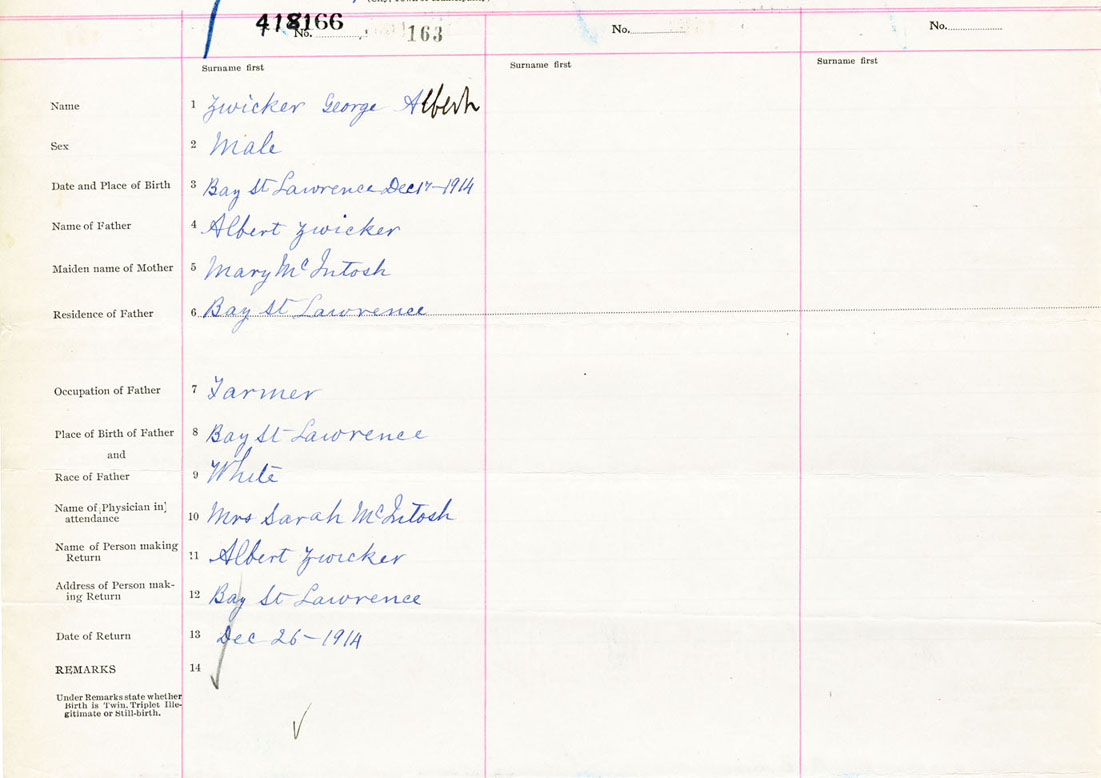 418166
No. 163 No. No.
Surname first Surname first Surname first
Name 1 Zwicker George Albert
Sex 2 Male
Date and Place of Birth 3 Bay St Lawrence Dec 17-1914
Name of Father 4 Albert Zwicker
Maiden name of Mother 5 Mary McIntosh
Residence of Father 6 Bay St Lawrence
Occupation of Father 7 Farmer
Place of Birth of Father 8 Bay St Lawrence
and
Race of Father 9 White
Name of Physician in
attendance 10 Mrs Sarah McIntosh
Name of Person making
Return 11 Albert Zwicker
Address of Person mak-
ing Return 12 Bay St Lawrence
Date of Return 13 Dec 26-1914
REMARKS 14
Under Remarks state whether
Birth is Twin, Triplet Ille-
gitimate or Still-birth.